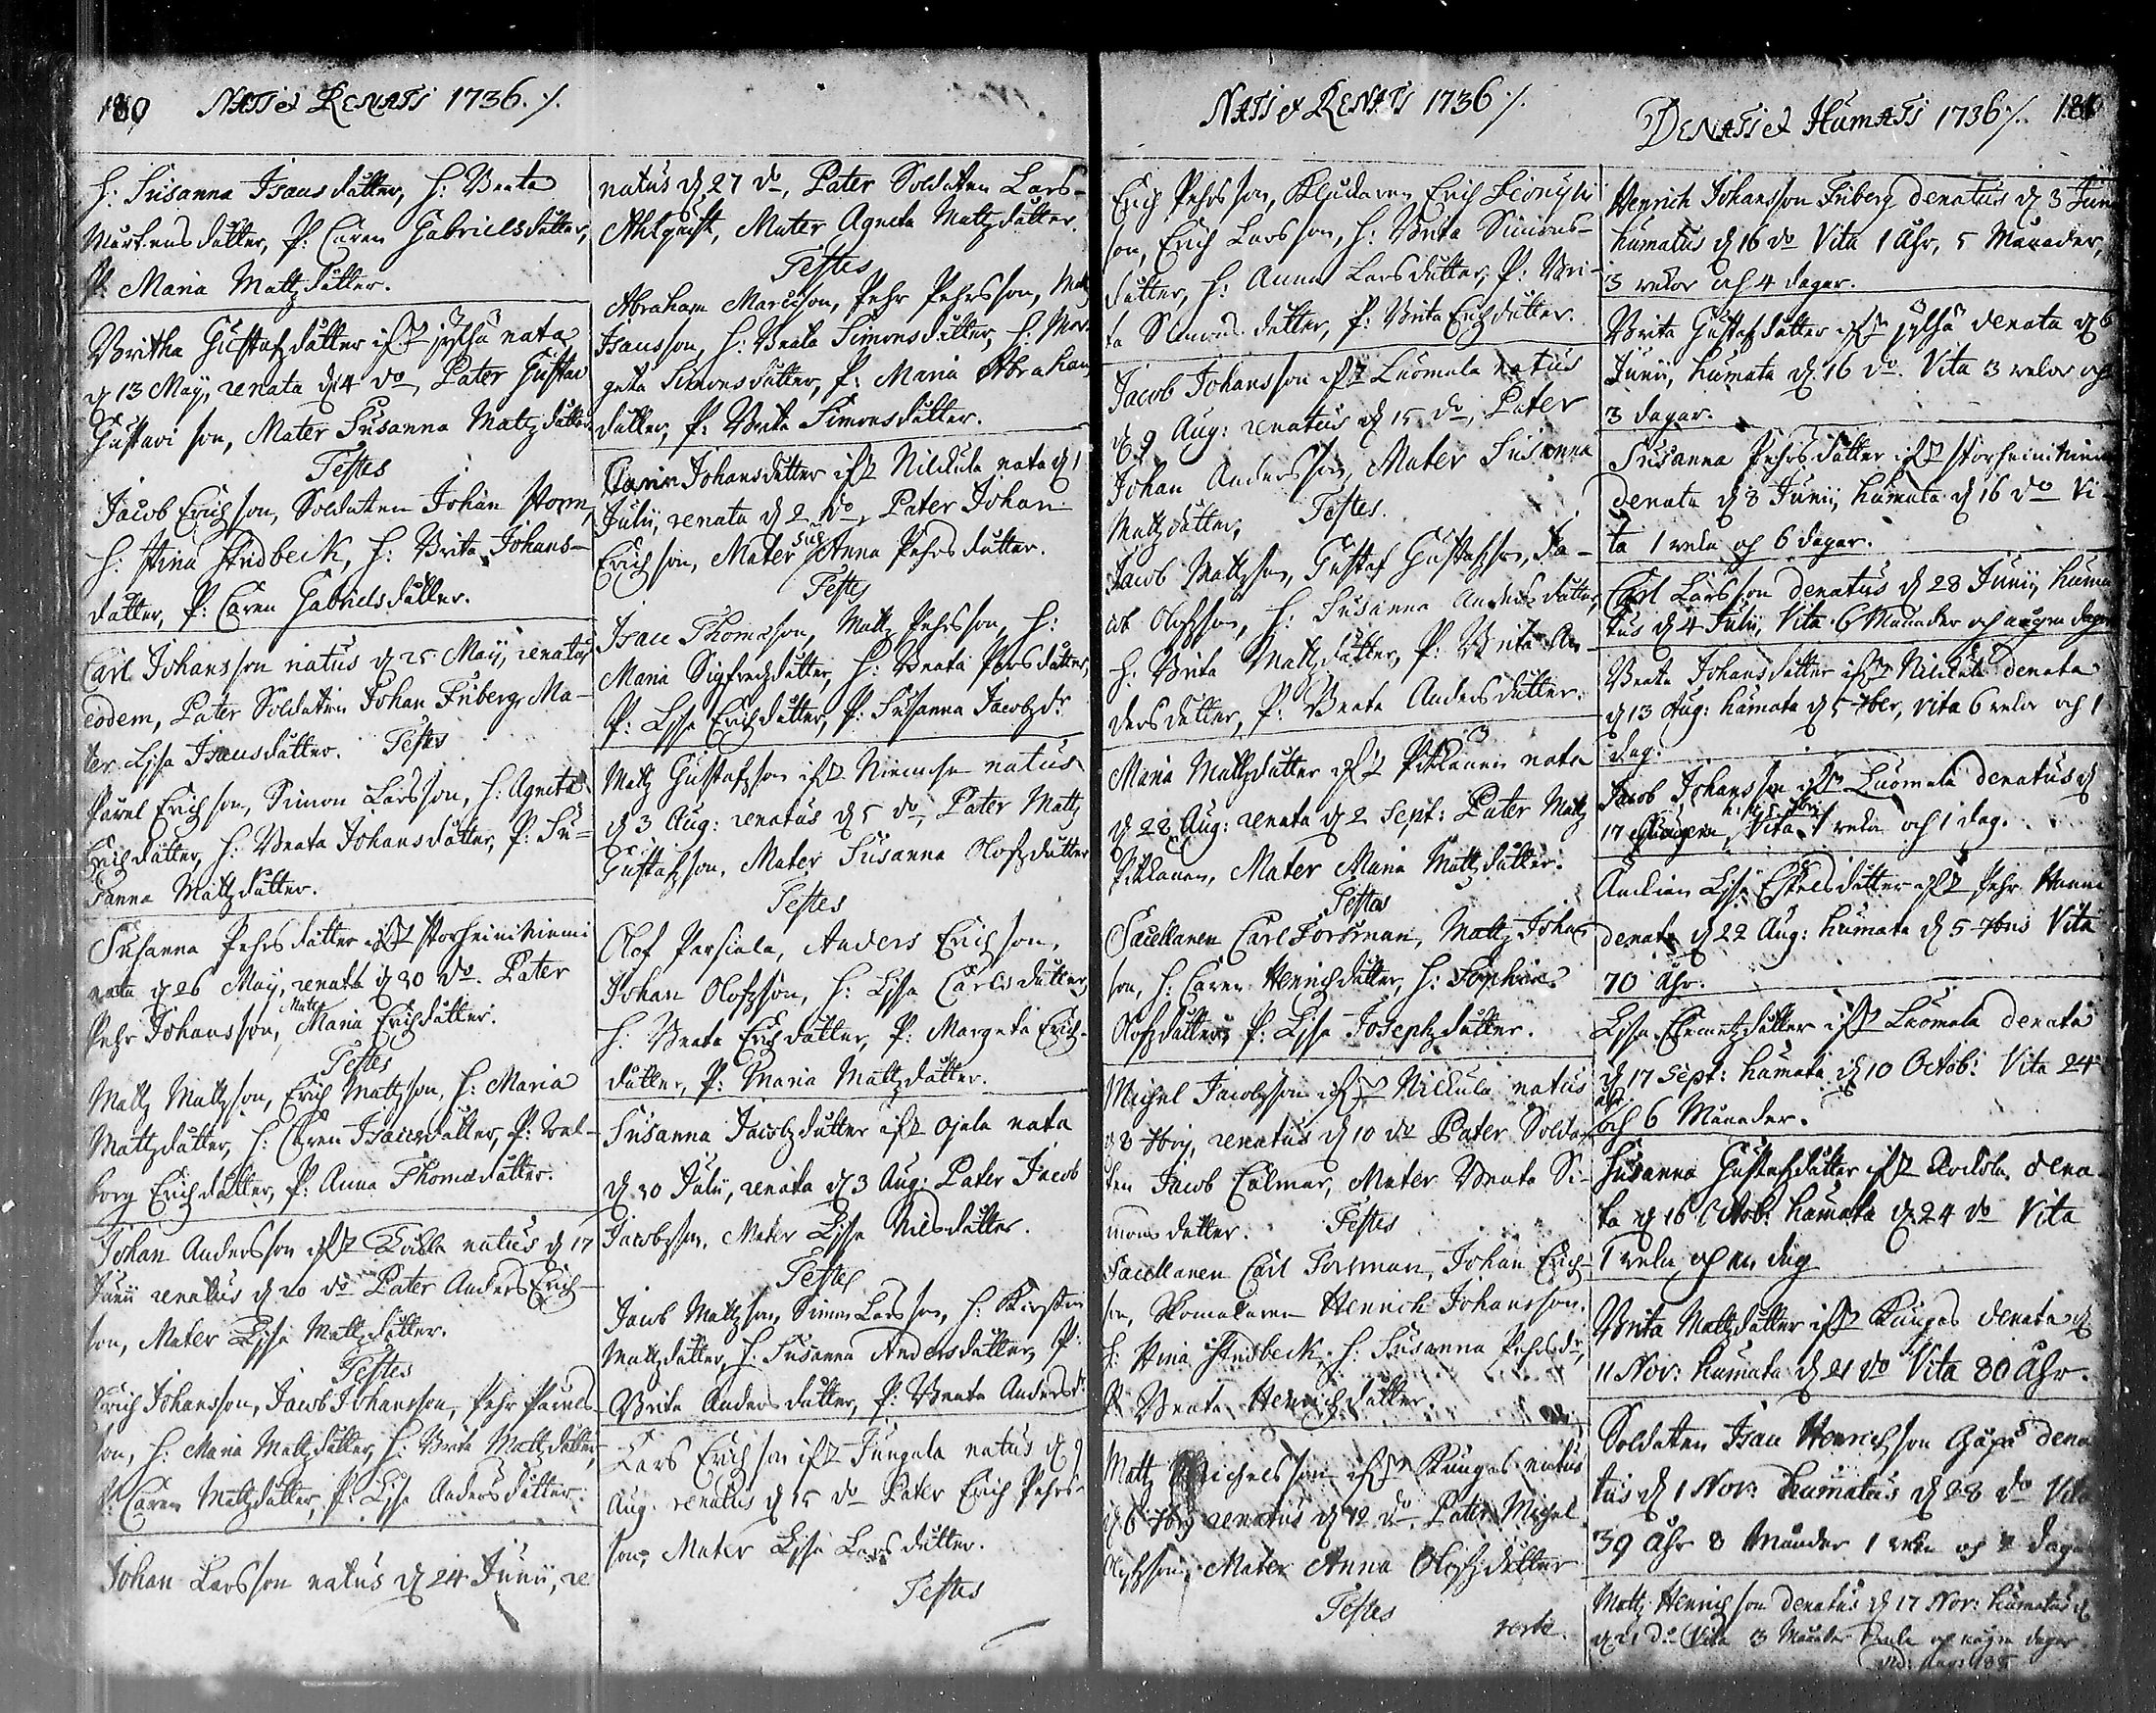 180 NATI et RENATI 1736 ./.
H: Susanna Isacsdåtter, H: Beata
Mårtensdåtter, P: Caren Gabrielsdåtter,
P: Maria Mattzdåtter.
Britha Gustafzdåtter ifr. nata
d 13 Maÿ, renata d 14 do, Pater Gustav
Gustavi son, Mater Susanna Mattzdåtter
Testes
Jacob Erichson, Soldaten Johan Storm,
H: Stina Lindbeck, H: Brita Johans-
dåtter, P: Caren Gabrielsdåtter.
Carl Johansson natus d 25 Maÿ, renatus
eodem, Pater Soldaten Johan Friberg, Ma-
ter Lisa Isacsdåtter. Testes
Påvel Erichson, Simon Larsson, H: Agneta
Erichdåtter, H: Beata Johansdåtter, P: Su-
sanna Mattzdåtter.
Susanna Pehrsdåtter ifr. Storheininiemi
nata d 26 Maÿ, renata d 30 do. Pater
Pehr Johansson, Mater Maria Erichdåtter.
Testes
Mattz Mattzson, Erich Mattzson, H: Maria
Mattzdåtter, H: Caren Isacsdåtter, P: Val-
borg Erichdåtter, P: Anna Thomædåtter.
Johan Andersson ifr. natus d 17
Junii renatus d 20 do Pater Anders Erich-
son, Mater Lisa Mattzdåtter.
Testes
Erich Johansson, Jacob Johansson, Pehr Påvels-
son, H: Maria Mattzdåtter, H: Brita Mattzdåtter,
P: Caren Mattzdåtter, P: Lisa Andersdåtter.
Johan Larsson natus d 24 Junii, re
natus d 27 do, Pater Soldaten Lars
Ahlquist, Mater Agneta Mattzdåtter.
Testes
Abraham Marcusson, Pehr Pehrsson, Mattz
Isacsson, H: Beata Simonsdåtter, H: Mar-
geta Simonsdåtter, P: Maria Abrahams
dåtter, P: Brita Simonsdåtter.
Carin Johansdåtter ifr. Nickula nata d 1
Julii, renata d 2 do, Pater Johan
Erichson, Mater Anna Pehrsdåtter.
Testes
Isac Thomæson, Mattz Pehrsson, H:
Maria Sigfredzdåtter, H: Beata Persdåtter,
P: Lisa Erichdåtter, P: Susanna Jacobzdr.
Mattz Gustafzson ifr. Niemese natus
d 3 Aug: renatus d 5 do, Pater Mattz
Gustafzson, Mater Susanna Olofzdåtter
Testes
Olof Parsiala, Anders Erichson,
Johan Olofzson, H: Lisa Carlsdåtter,
H: Beata Erichdåtter, P: Margeta Erich-
dåtter, P: Maria Mattzdåtter.
Susanna Jacobzdåtter ifr. Ojala nata
d 30 Julii, renata d 3 Aug: Pater Jacob
Jacobzson, Mater Lisa Nilsdåtter.
Testes
Jacob Mattzson, Simon Larsson, H: Kirstin
Mattzdåtter, H. Susanna Andersdåtter, P:
Brita Andersdåtter, P: Beata Andersdr
Lars Erichson ifr. Jungala natus d 9
Aug. renatus d 15 do Pater Erich Pehrs-
son, Mater Lisa Larsdåtter.
Testes
NATI et RENATI 1736 ./.
Erich Pehrsson, Klockaren Erich Dionysii
son, Erich Larsson, H: Brita Simons-
dåtter, H: Anna Larsdåtter, P: Bri-
ta Simonsdåtter, P: Brita Erichdåtter.
Jacob Johansson ifr. Luomala natus
d 9 Aug: renatus d 15 do, Pater
Johan Andersson, Mater Susanna
Mattzdåtter, Testes.
Jacob Mattzson, Gustaf Gustafzson, Ja-
cob Olofzson, H: Susanna Andersdåtter,
H: Brita Mattzdåtter, P: Brita An-
dersdåtter, P: Beata Andersdåtter.
Maria Mattzdåtter ifr. Piklanen nata
d 28 Aug: renata d 2 Sept: Pater Mattz
Piklanen, Mater Maria Mattzdåtter.
Testes
Sacellanen Carl Forsman, Mattz Johans
son, H: Caren Henrichdåtter, H: Sophia
Olofzdåtter, P: Lisa Josephzdåtter.
Michel Jacobzson ifr. Nickula natus
d 8 7bris, renatus d 10 do Pater Solda-
ten Jacob Calmar, Mater Beata Si-
monsdåtter. Testes
Sacellanen Carl Forsman, Johan Erich-
son, Skomakaren Henrich Johansson.
H: Stina Lindbeck, H: Susanna Pehrsdr,
P: Beata Henrichdåtter.
Mattz Michelsson ifr. Kangas natus
d 6 7bris renatus d 12 do. Pater Michel
Olofzson, Mater Anna Olofzdåtter
Testes verte.
DENATI et HUMATI 1736 ./. 181
Henrich Johansson Friberg denatus d 3 Junii
humatus d 16 do Vita 1 Åhr, 5 Månader,
3 wekor och 4 dagar.
Brita Gustafzdåtter ifr. denata d 6
Junii, humata d. 16 do. Vita 3 wekor och
3 dagar.
Susanna Pehrsdåtter ifr. Storheininiemi
denata d 8 Junii, humata d 16 do Vi-
ta 1 weka och 6 dagar.
Carl Larsson denatus d 28 Junii, huma
tus d 4 Julii, Vita 6 Månader och någre dagar
Beata Johansdåtter ifr. Nickula denata
d 13 Aug: humata d 5 7ber, Vita 6 wekor och 1
dag.
Jacob Johansson ifr. Luomala denatus d
17 Vita 1 weka och 1 dag.
Änckian Lisa Eskelsdåtter ifr. Pehr
denata d 22 Aug: humata d 5 7bris Vita
70 åhr.
Lisa Clemetzdåtter ifr. Luomala denata
d 17 Sept: humata d 10 Octob: Vita 24
åhr och 6 Månader.
Susanna Gustafzdåtter ifr. dena
ta d 16 Octob: humata d. 24 do Vita
1 weka och en dag
Brita Mattzdåtter ifr. Kangas denata d
11 Nov: humata d 21 do Vita 80 Åhr.
Soldaten Isac Henrichson dena
tus d 1 Nov: humatus d 28 do Vita
39 Åhr 8 Månader 1 weka och dagar
Mattz Henrichson denatus d 17 Nov: humatus d
d 21 do Vita 3 Månader och någre dagar